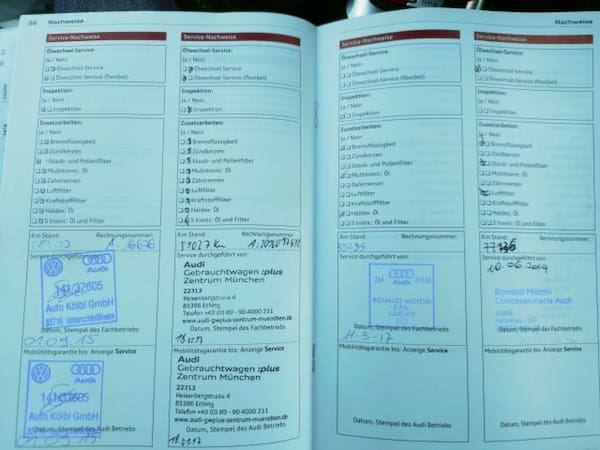 86 Nachweise
Service-Nachweise
Ölwechsel-Service:
Ja / Nein
Ölwechsel-Service
Ölwechsel-Service (flexibel)
Inspektion:
Ja / Nein
Inspektion
Zusatzarbeiten:
Ja / Nein
Bremsflüssigkeit
Zündkerzen
Staub- und Pollenfilter
Multitronic: Öl
Zahnriemen
Luftfilter
Kraftstofffilter
Haldex: Öl
S tronic: Öl und Filter
Km Stand: Rechnungsnummer:
A-16676
Service durchgeführt von:
Audi
141/27605
Auto Kölbl GmbH
85716 Unterschleißheim
Datum, Stempel des Fachbetriebs
01.09.15
Mobilitätsgarantie bis: Anzeige Service
Audi
141/27605
Auto Kölbl GmbH
Datum, Stempel des Audi Betriebs
01.09.15
Service-Nachweise
Ölwechsel-Service:
Ja / Nein
Ölwechsel-Service
Ölwechsel-Service (flexibel)
Inspektion:
Ja / Nein
Inspektion
Zusatzarbeiten:
Ja / Nein
Bremsflüssigkeit
Zündkerzen
Staub- und Pollenfilter
Multitronic: Öl
Zahnriemen
Luftfilter
Kraftstofffilter
Haldex: Öl
S tronic: Öl und Filter
Km Stand: Rechnungsnummer:
51027 km
Service durchgeführt von:
Audi
Gebrauchtwagen :plus
Zentrum München
22313
Heisenbergstraße 4
85386 Eching
Telefon +49 (0) 89 - 90 4000 211
www.audi-gwplus-zentrum-muenchen.de
Datum, Stempel des Fachbetriebs
Mobilitätsgarantie bis: Anzeige Service
Audi
Gebrauchtwagen :plus
Zentrum München
22313
Heisenbergstraße 4
85386 Eching
Telefon +49 (0) 89 - 90 4000 211
www.audi-gwplus-zentrum-muenchen.de
Datum, Stempel des Audi Betriebs
Service-Nachweise
Ölwechsel-Service:
Ja / Nein
Ölwechsel-Service
Ölwechsel-Service (flexibel)
Inspektion:
Ja / Nein
Inspektion
Zusatzarbeiten:
Ja / Nein
Bremsflüssigkeit
Zündkerzen
Staub- und Pollenfilter
Multitronic: Öl
Zahnriemen
Luftfilter
Kraftstofffilter
Haldex: Öl
S tronic: Öl und Filter
Km Stand: Rechnungsnummer:
Service durchgeführt von:
Audi
BONALDI MOTORI
S.P.A.
Datum, Stempel des Fachbetriebs
11-9-17
Mobilitätsgarantie bis: Anzeige Service
Datum, Stempel des Audi Betriebs
Nachweise
Service-Nachweise
Ölwechsel-Service:
Ja / Nein
Ölwechsel-Service
Ölwechsel-Service (flexibel)
Inspektion:
Ja / Nein
Inspektion
Zusatzarbeiten:
Ja / Nein
Bremsflüssigkeit
Zündkerzen
Staub- und Pollenfilter
Multitronic: Öl
Zahnriemen
Luftfilter
Kraftstofffilter
Haldex: Öl
S tronic: Öl und Filter
Km Stand: Rechnungsnummer:
Service durchgeführt von:
10.06.2019
Bonaldi Motori
Concessionaria Audi
Datum, Stempel des Fachbetriebs
Mobilitätsgarantie bis: Anzeige Service
Datum, Stempel des Audi Betriebs